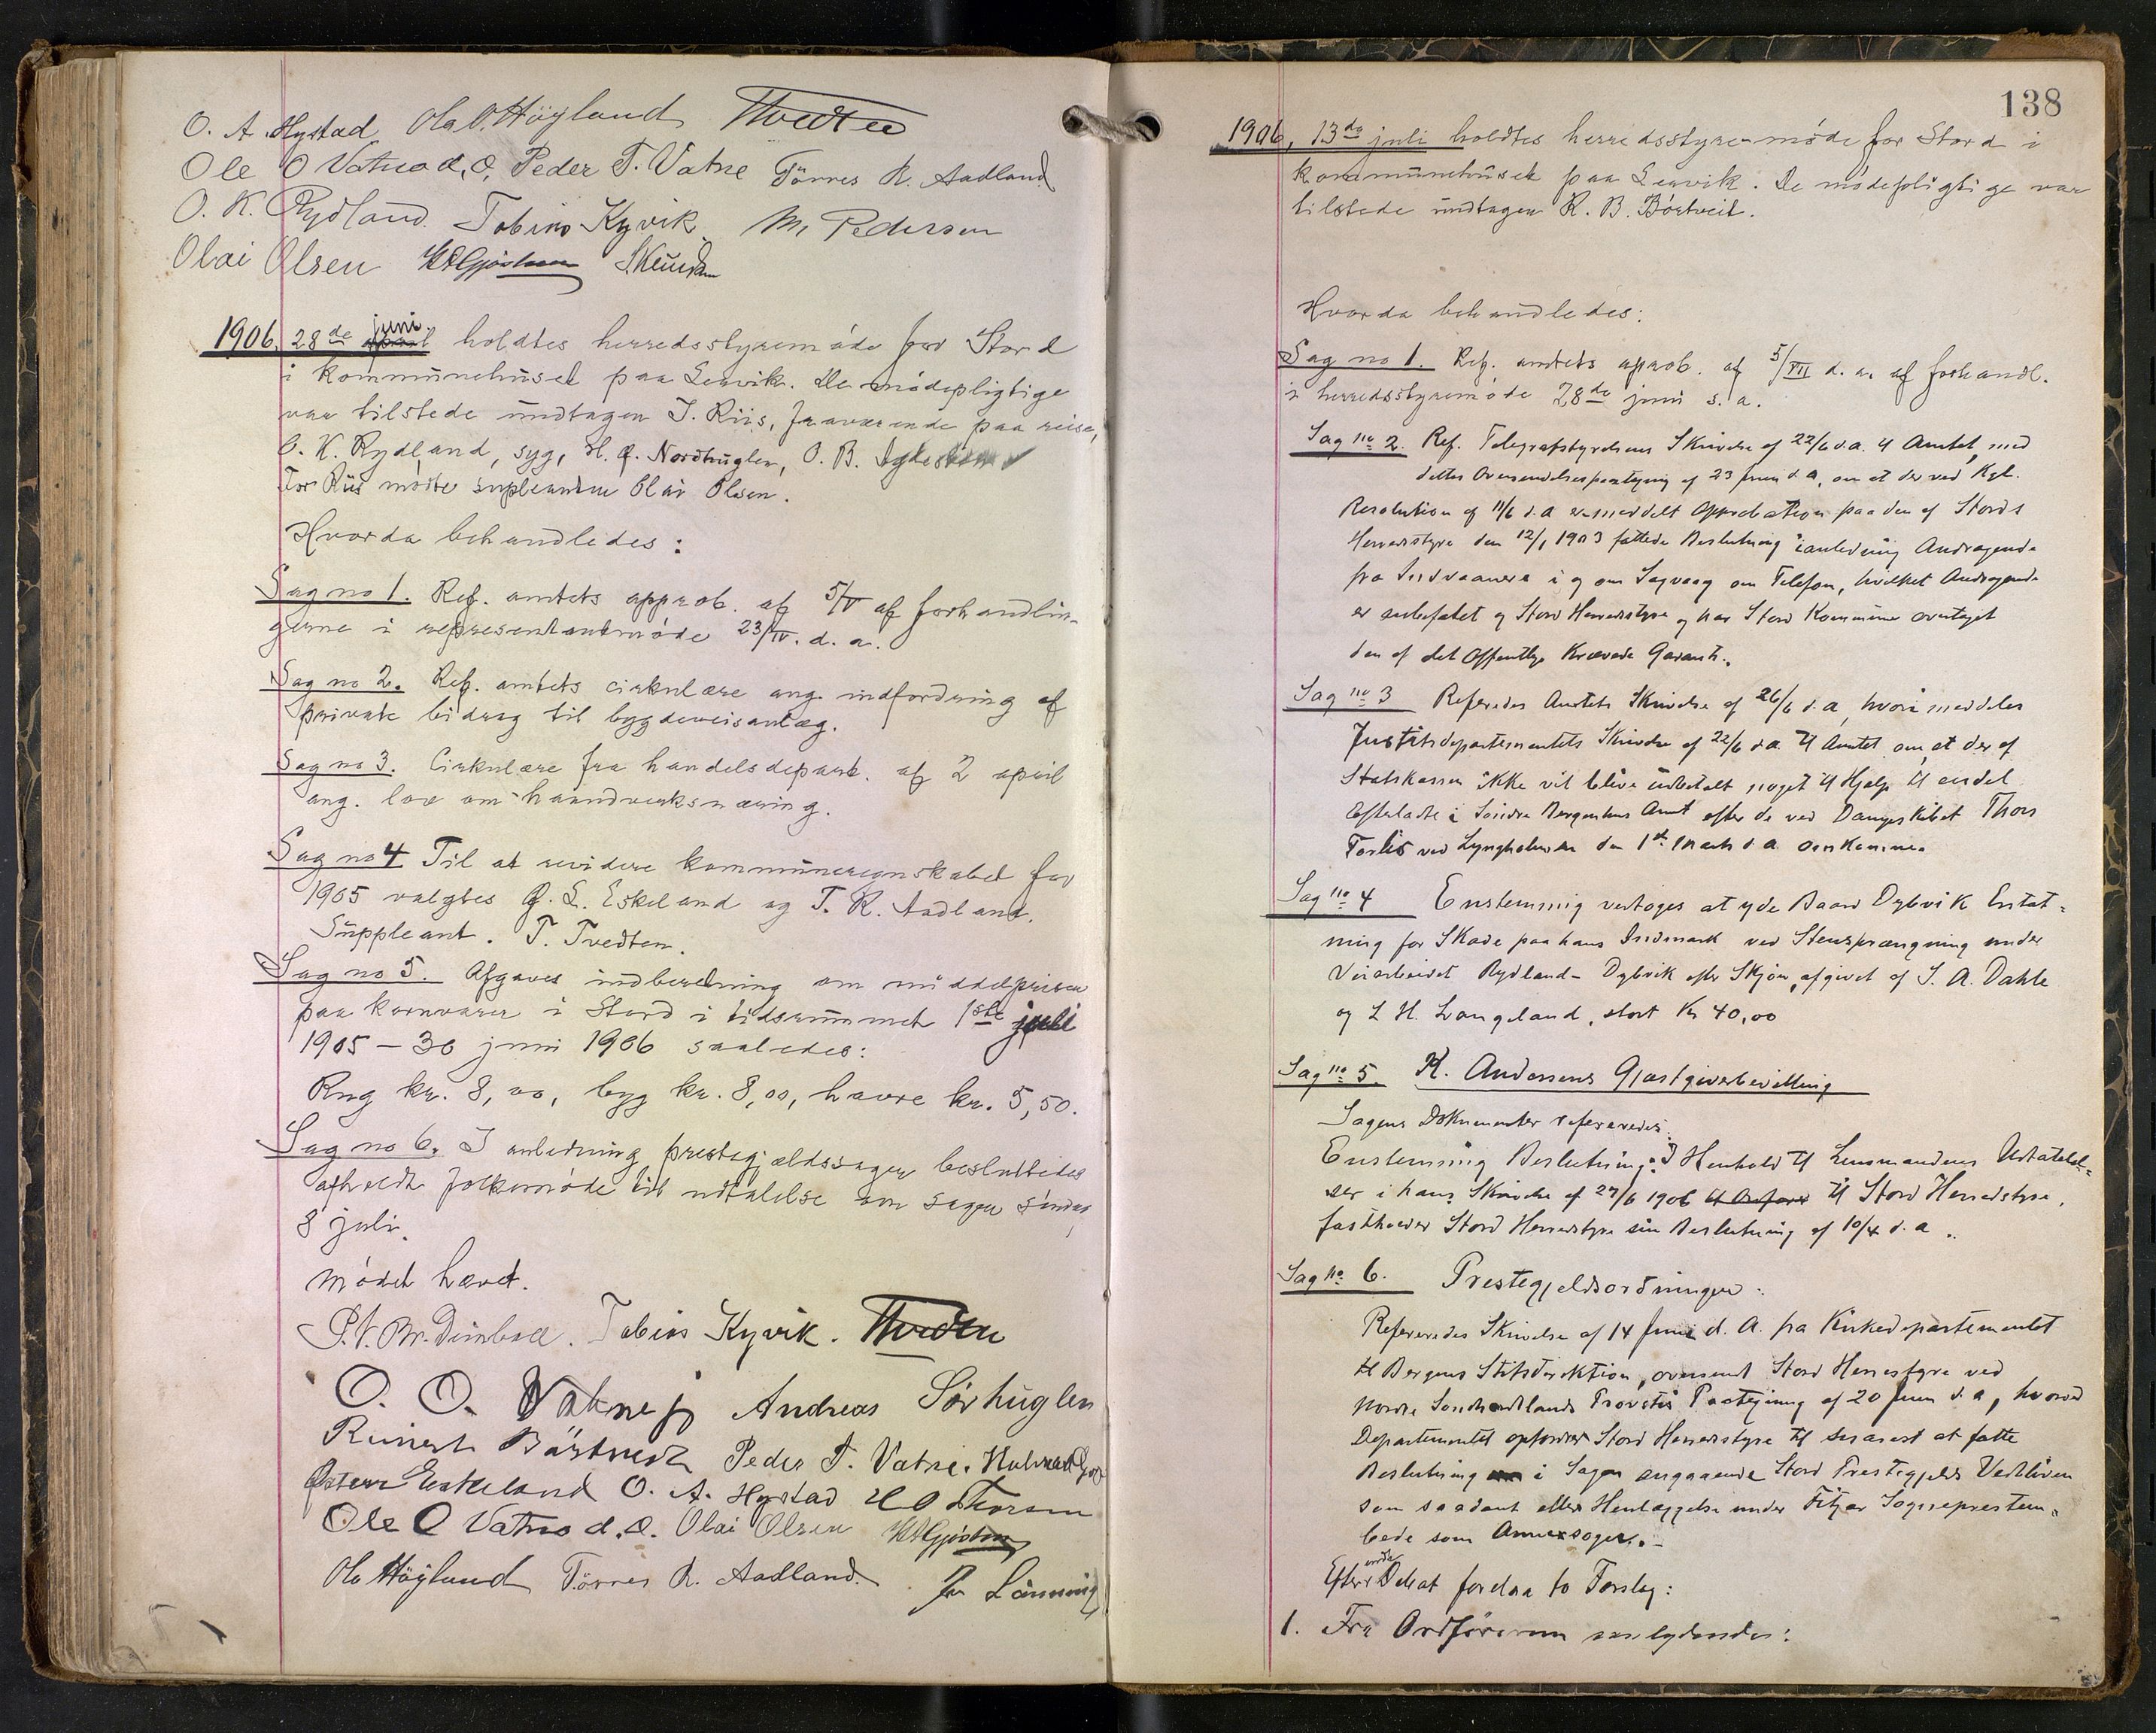 O. A. Hystad Ola O. Höyland Tvedten
Ole O Vatne d. æ. Peder T. Vatne Törres R. Aadland
O. K. Rydland. Tobias Kyvik M. Pedersen
Olai Olsen
1906, 28de juni holdtes herredsstyremöde for Stord
i kommunehuset paa Lervik. De mödepligtige
var tilstede undtagen J. Riis, fraværende paa reise,
O. K. Rydland, syg, H. Q. Nordhuglen, O. B.
For Riis mödte supleanten Olai Olsen.
Hvorda behandledes:
Sag no 1. Ref. amtets approb. af 5/V af forhandlin-
gerne i representantmöde 23/IV. d. a.
Sag no 2. Ref. amtets cirkulære ang. indfordring af
private bidrag til bygdeveisanlæg.
Sag no 3. Cirkulære fra handelsdepart. af 2 april
ang. lov om haandverksnæring.
Sag no 4 Til at revidere kommuneregnskabet for
1905 valgtes Q. L. Eskeland og T. R. Aadland.
Suppleant. T. Tvedten.
Sag no 5. Afgaves indberetning om middelprisen
paa kornvarer i Stord i tidsrummet 1ste juli
1905 – 30 juni 1906 saaledes:
Rug kr. 8,00, byg kr. 8,00, havre kr. 5,50.
Sag no 6. I anledning prestegjældssagen besluttedes
afholdt folkemöde til udtalelse om sagen söndag
8 juli.
Mödet hævet.
Tobias Kyvik. Tvedten
O. O. Vatne jr Andreas Sörhuglen
Reinert Börtveit Peder T. Vatne.
Östen Eskeland O. A. Hystad H O Thorsen
Ole O Vatne d. æ. Olai Olsen
Ola Höyland Törres R. Aadland. Lönning
138
1906, 13de juli holdtes herredsstyremöde for Stord i
kommunehuset paa Lervik. De mödepligtige var
tilstede undtagen R. B. Börtveit.
Hvorda behandledes:
Sag no 1. Ref. amtets aprob. af 5/VII d. a. af forhandl.
i herredsstyremöde 28de juni s. a.
Sag no 2. Ref. Telegrafstyrelsens Skrivelse af 22/6 d.a. til Amtet, med
dettes Oversendelsespaategning af 23 Juni d. a, om at der ved Kgl.
Resolution af 11/6 d. a er meddelt Approbation paa den af Stords
Herredsstyre den 12/1 1903 fattede Beslutning i anledning Andragende
fra Indvaanere i og om Sagvaag om Telefon, hvilket Andragende
er anbefalet af Stord Herredsstyre og har Stord Kommune overtaget
den af det Offentlige Krævede Garanti.
Sag no 3 Referedes Amtets Skrivelse af 26/6 d. a, hvori meddeles
Justitsdepartementets Skrivelse af 22/6 d.a. til Amtet om at der af
Statskassen ikke vil blive udbetalt noget til Hjælp til endel
Efterladte i Söndre Bergenhus Amt efter de ved Dampskibet Thors
Forlis ved Lyngholmen den 1st Marts d. a. omkomne.
Sag no 4 Enstemmig vedtoges at yde Baard Dybvik Erstat-
ning for Skade paa hans Indmark ved Stensprængning under
Veiarbeidet Rydland – Dybvik efter Skjön, afgivet af S. A. Dahle
og L H. Langeland, stort Kr 40,00
Sag no 5. K. Andersens Gjæstgiverbevilling
Sagens Dokumenter refereredes.
Enstemmig Beslutning: I Henhold til Lensmandens Udtalel-
ser i hans Skrivelse af 27/6 1906 til Stord Herredstyre,
fastholder Stord Herredstyre sin Beslutning af 10/4 d. a.
Sag no 6. Prestegjeldsordningen.
Refereredes Skrivelse af 14 Juni d. A. fra Kirkedepartementet
til Bergens Stiftsdirektion, oversendt Stord Herrestyre ved
Nordre Söndhordlands Provstis Paategning af 20 Juni d. a, hvorved
Departementet opfordrer Stord Herredsstyre til snarest at fatte
Beslutning i Sagen angaaende Stord Prestegjelds Vedbliven
som saadant eller Henlæggelse under Fitjar Sogneprestem-
bede som Annexsogn.-
Efter endt Debat forelaa to Forslag:
1. Fra Ordföreren saalydende: